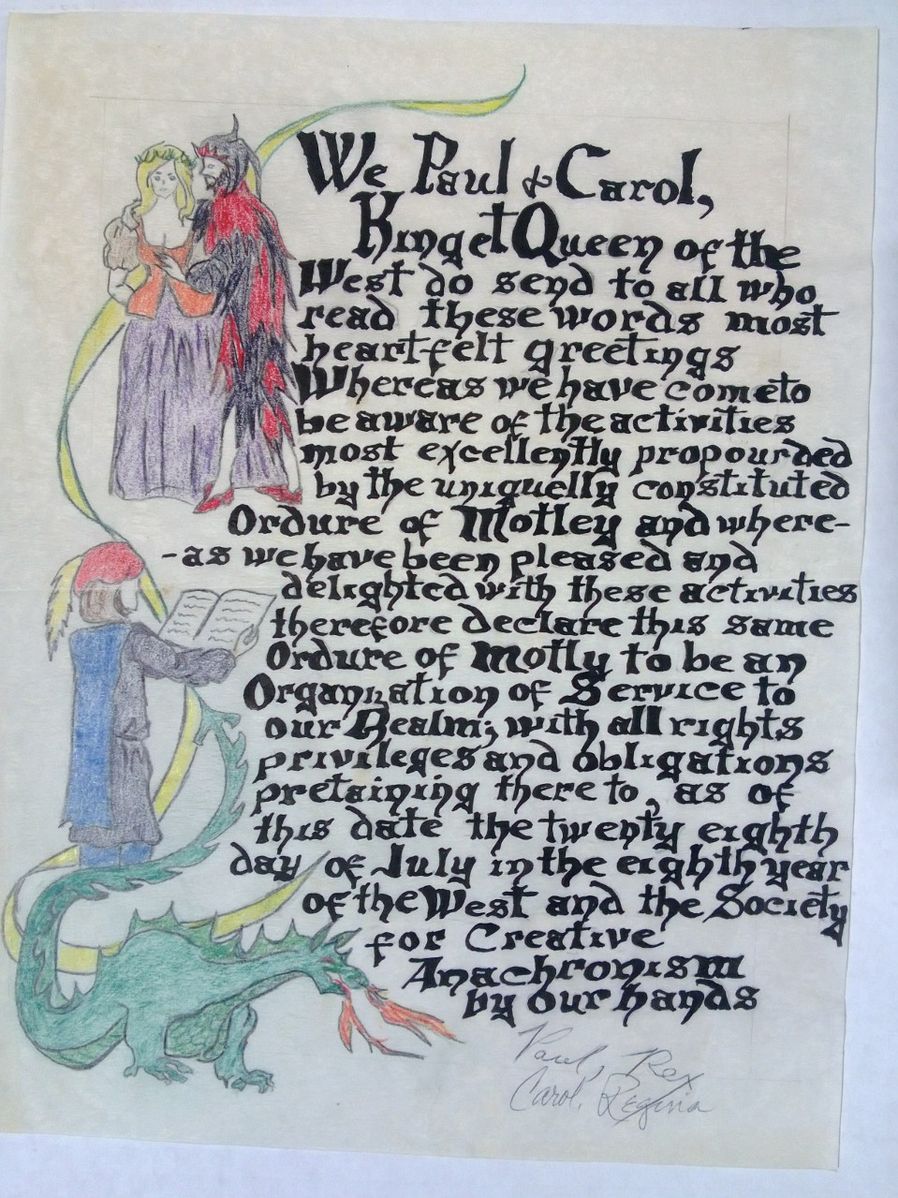 We Paul & Carol,
King et Queen of the
West do send to all who
read these words most
heartfelt greetings
Whereas we have come to
be aware of the activities
most excellently propourded
by the uniquelly constituted
Ordure of Motley and where-
-as we have been pleased and
delighted with these activities
therefore declare this same
Ordure of Motly to be an
Organization of Service to
our Realm; with all rights
privileges and obligations
pretaining there to, as of
this date the twenty eighth
day of July in the eighth year
of the West and the Society
for Creative
Anachronism
by our hands
Paul, Rex
Carol, Regina